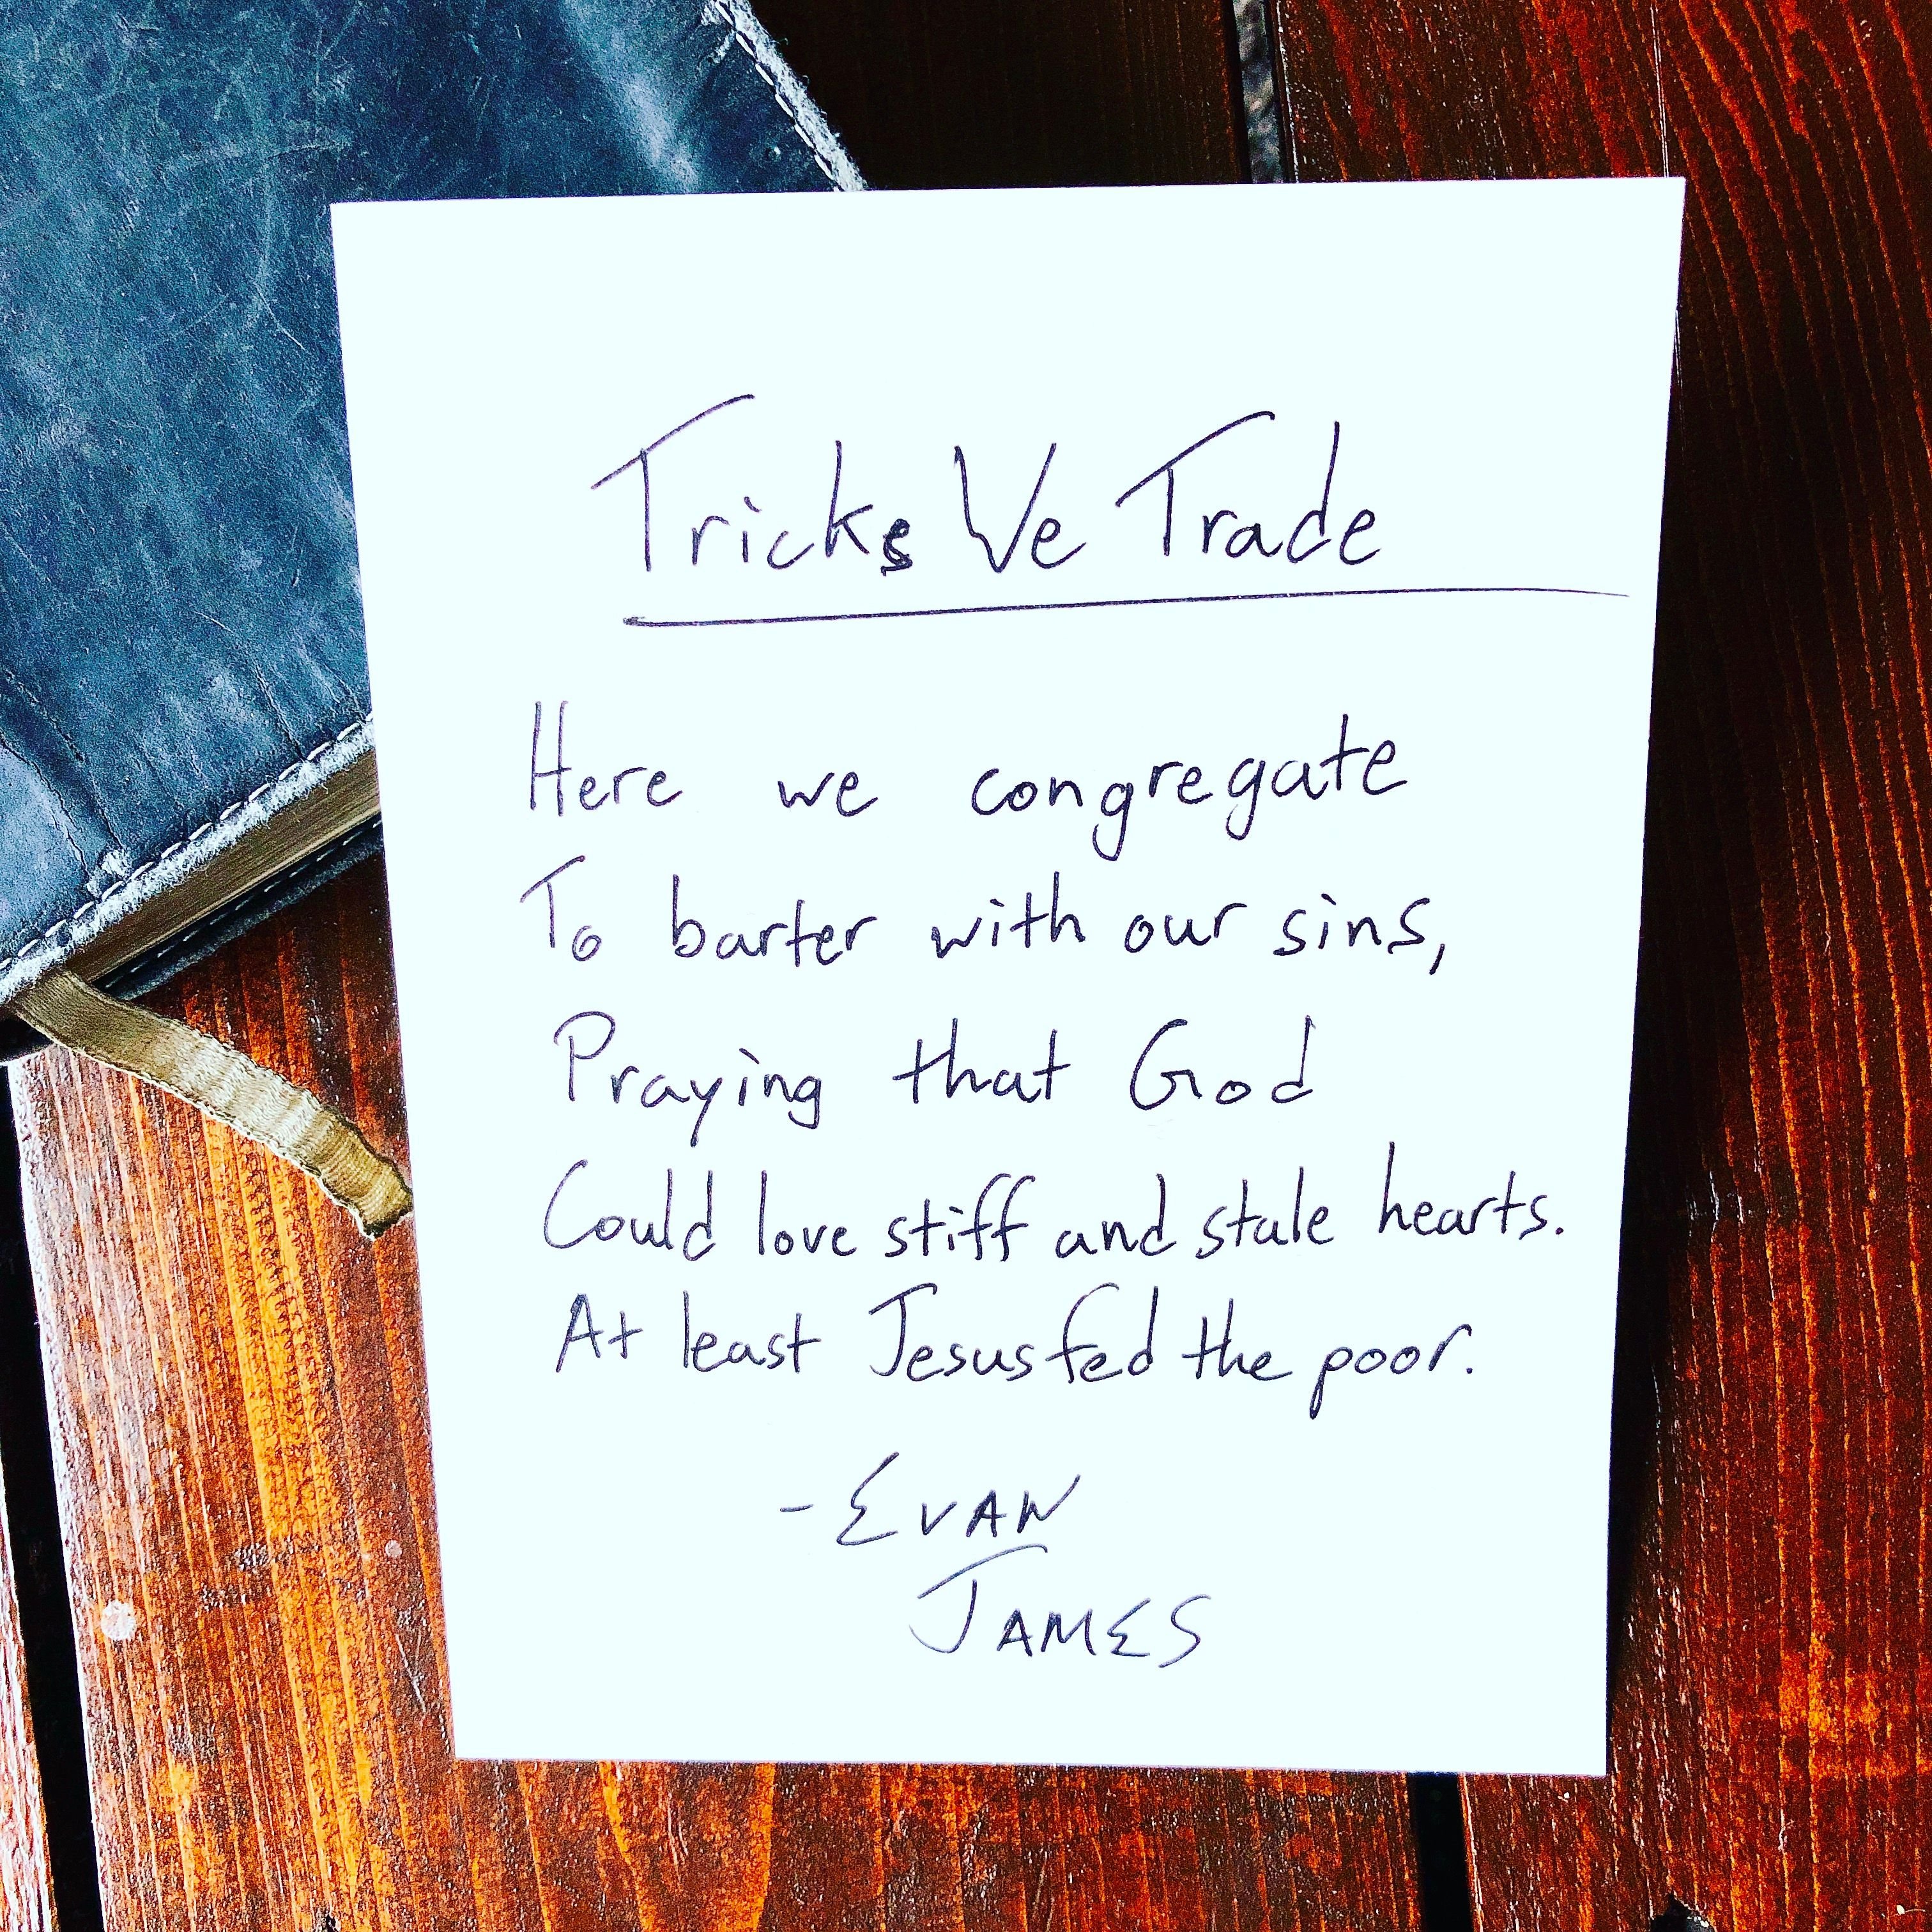 Tricks We Trade
Here we congregate
To barter with our sins,
Praying that God
Could love stiff and stale hearts.
At least Jesus fed the poor.
- EVAN
JAMES